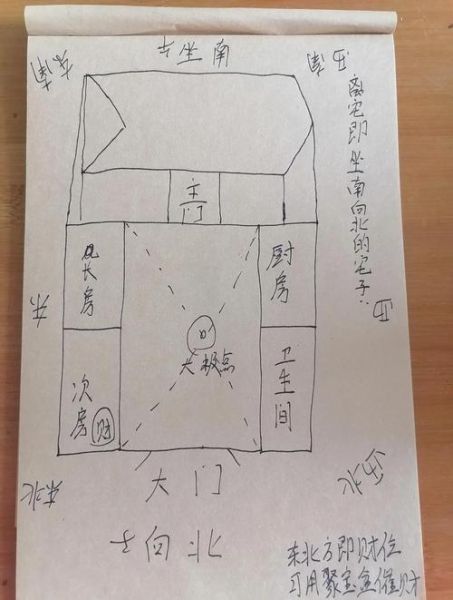 坐南
东南
西南
离宅即坐南向北的宅子:
主门
兄长房
厨房
东
西
太极点
次房
财
卫生间
大门
东北
西北
向北
东北方即财位
可用聚宝盆催财